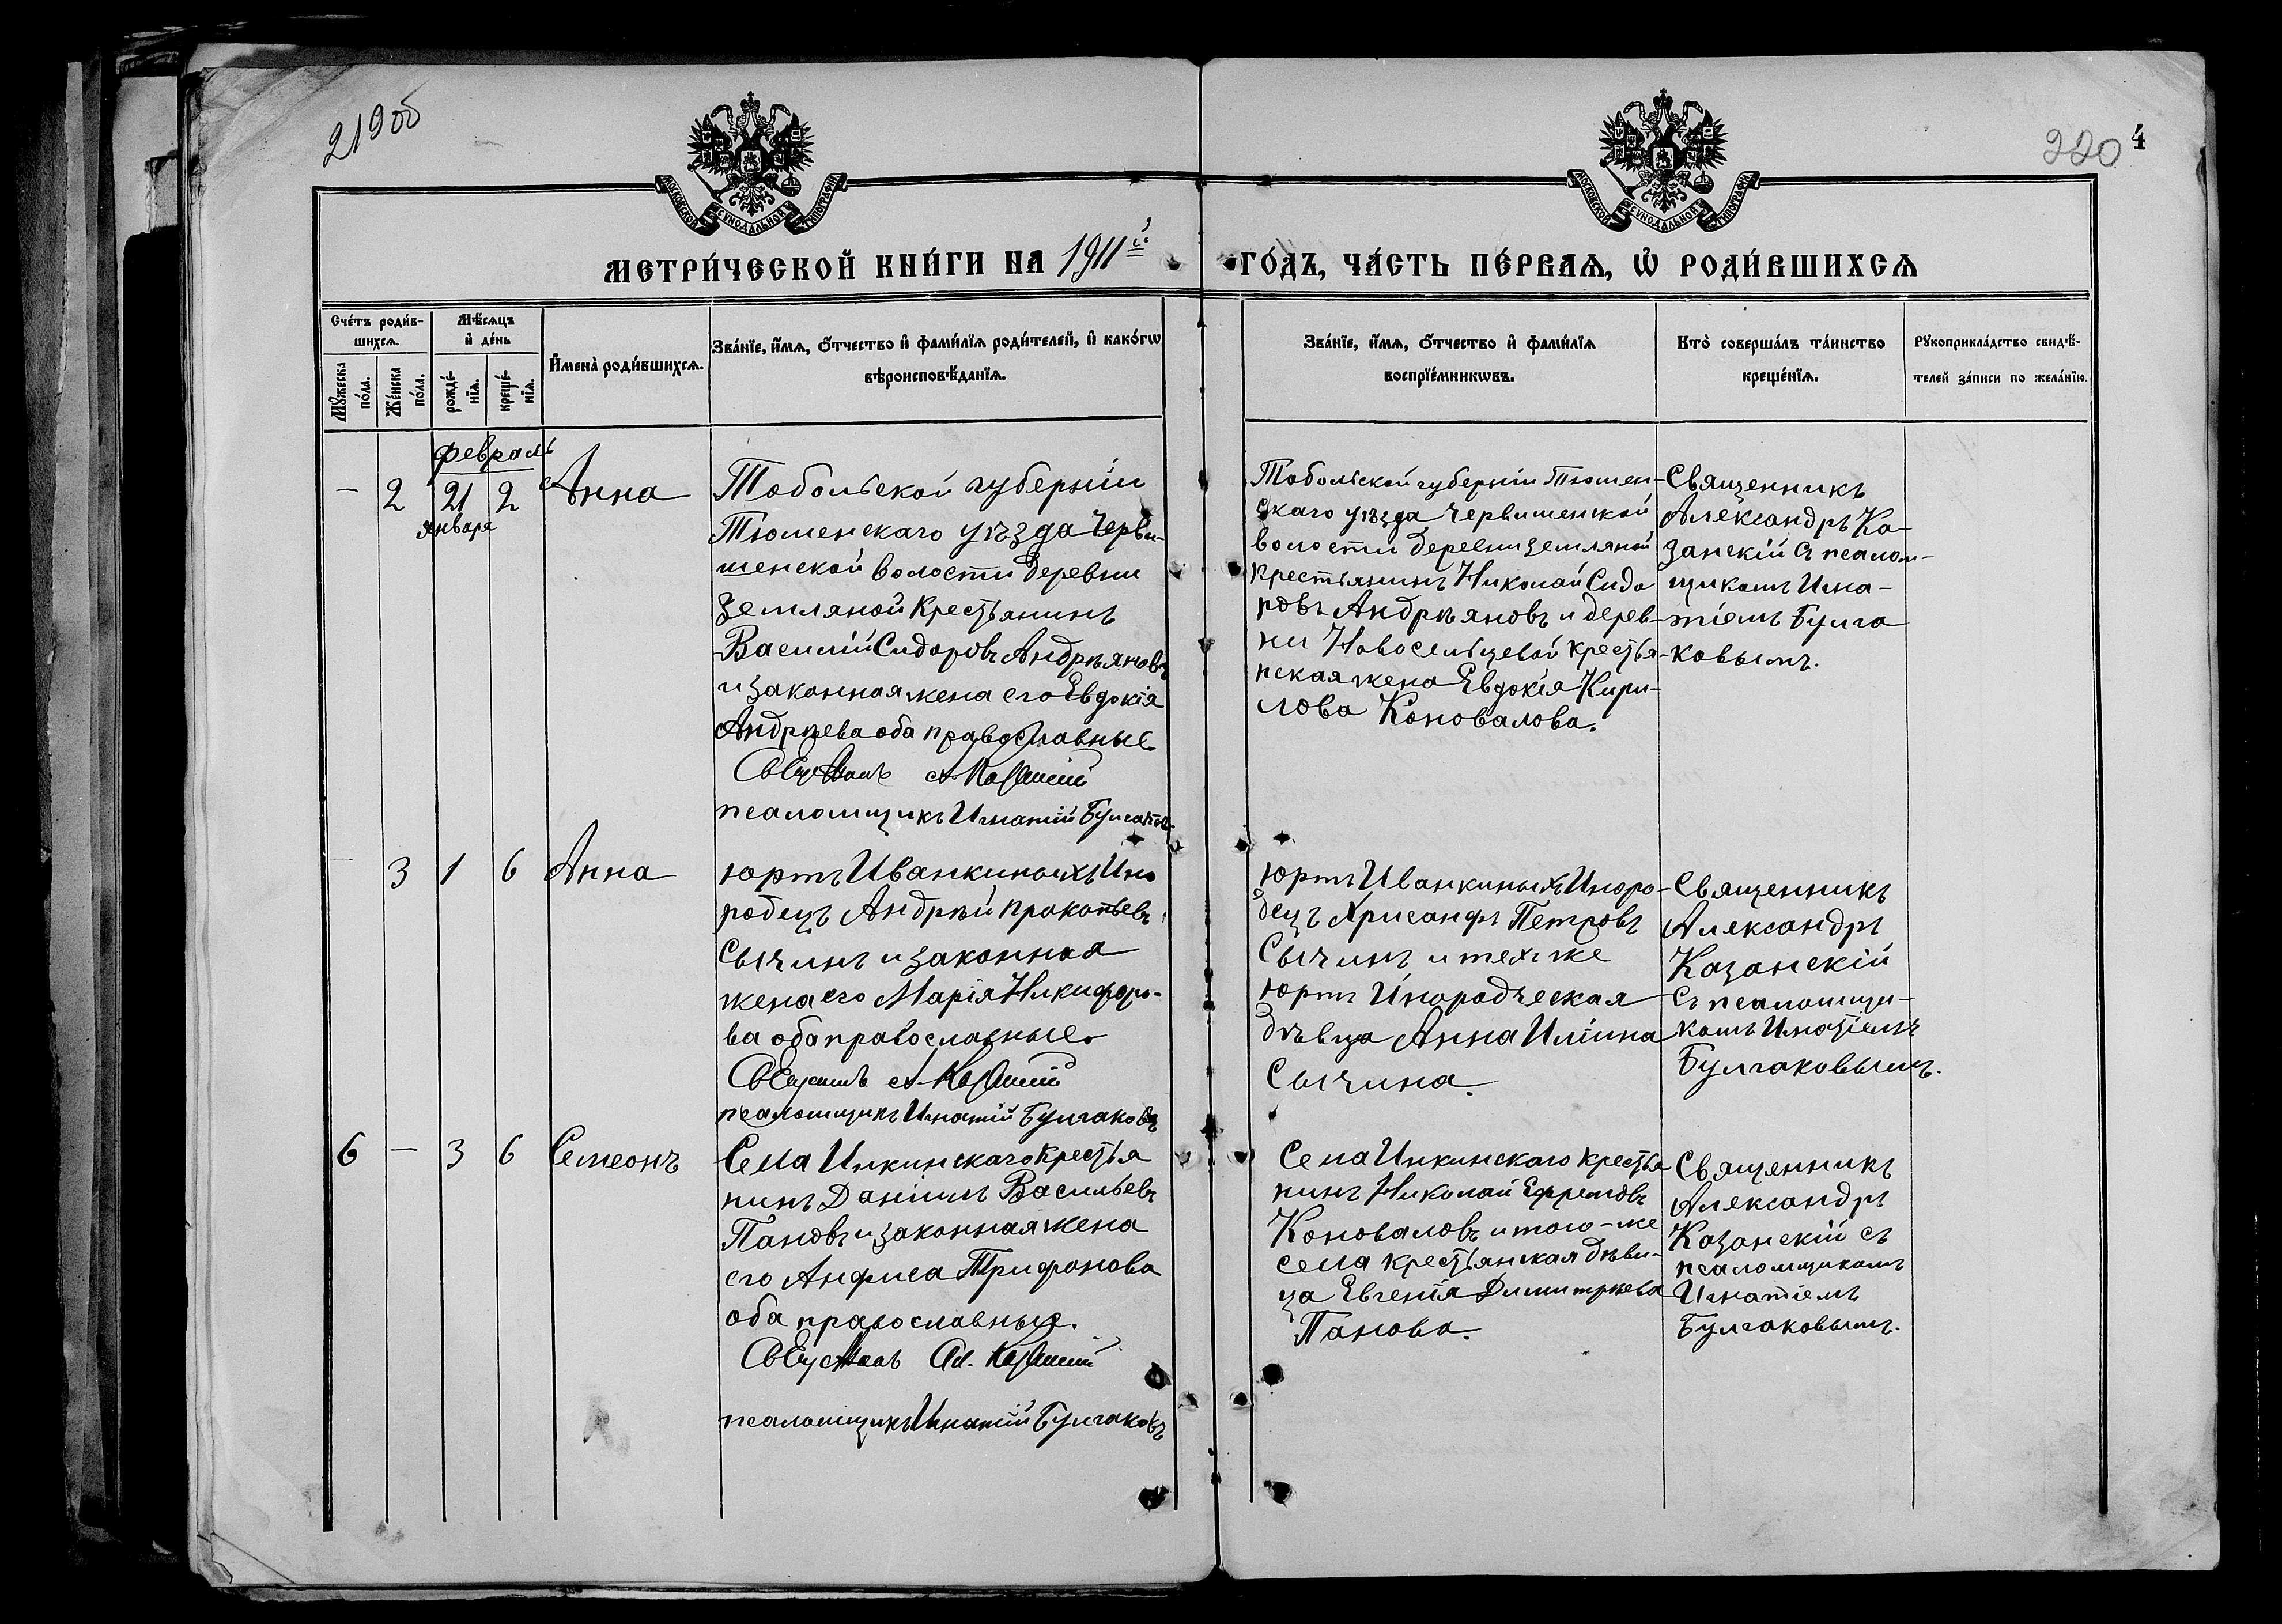 219об
220
4
МОСКОВСКОЙ СѴНОДАЛЬНОЙ ТИПОГРАФІИ
МОСКОВСКОЙ СѴНОДАЛЬНОЙ ТИПОГРАФІИ
МЕТРИ́ЧЕСКОЙ КНИ́ГИ НА 1911й
ГО́ДЪ, ЧА́СТЬ ПЕ́РВАѦ, Ѡ҆ РОДИ́ВШИХСѦ
Сче́тъ роди́в-
шихсѧ.
Мꙋ́жеска
по́ла.
Же́нска
по́ла.
Мѣ́сѧцъ
и҆ де́нь
рожде́-
нїѧ.
креще́-
нїѧ.
И҆мена̀ роди́вшихсѧ.
Зва́нїе, и҆́мѧ, ѻ҆́тчество и҆ фами́лїѧ роди́телей, и҆ како́гѡ
вѣроисповѣ́данїѧ.
Зва́нїе, и҆́мѧ, ѻ҆́тчество и҆ фами́лїѧ
воспрїе́мникѡвъ.
Кто̀ соверша́лъ та́инство
креще́нїѧ.
Рꙋкоприкла́дство свидѣ́-
телей за́писи по жела́нїю.
февраль
— 2 21 2 Анна
января
Тобольской губерніи
Тюменскаго уѣзда Черви-
шенской волости деревни
Земляной крестьянинъ
Василій Сидоровъ Андрѣяновъ
и законная жена его Евдокія
Андрѣева оба православные
Священникъ А. Казанскій
псаломщикъ Игнатій Булгаковъ.
Тобольской губерніи Тюмен-
скаго уѣзда Червишенской
волости деревни Земляной
крестьянинъ Николай Сидо
ровъ Андрѣяновъ и дерев-
ни Новосельцевой крестья-
нская жена Евдокія Кири-
лова Коновалова.
Священникъ
Александръ Ка-
занскій съ псалом-
щикомъ Игна-
тіемъ Булга
ковымъ.
— 3 1 6 Анна
юртъ Иванкиныхъ Ино
родецъ Андрѣй Прокопьевъ
Сычинъ и законная
жена его Марія Никифоро-
ва оба православные
Священникъ А. Казанскій
псаломщикъ Игнатій Булгаковъ
юртъ Иванкиныхъ Иноро-
децъ Хрисанфъ Петровъ
Сычинъ и техъ же
юртъ Инородческая
дѣвица Анна Ильина
Сычина.
Священникъ
Александръ
Казанскій
съ псаломщи-
комъ Игнатіемъ
Булгаковымъ.
6 — 3 6 Симеонъ
Села Инкинскаго крестья
нинъ Даніилъ Васильевъ
Пановъ и законная жена
его Анфиса Трифонова
оба православные.
Священникъ Ал. Казанскій
псаломщикъ Игнатій Булгаковъ
Села Инкинскаго крестья
нинъ Николай Ефремовъ
Коноваловъ и того-же
села крестьянская дѣви-
ца Евгенія Димитріева
Панова.
Священникъ
Александръ
Казанскій съ
псаломщикомъ
Игнатіемъ
Булгаковымъ.